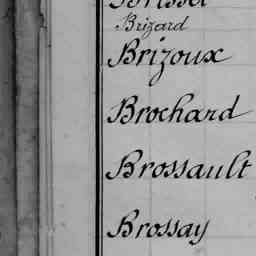 Brizard
Brizoux
Brochard
Brossault
Brossay